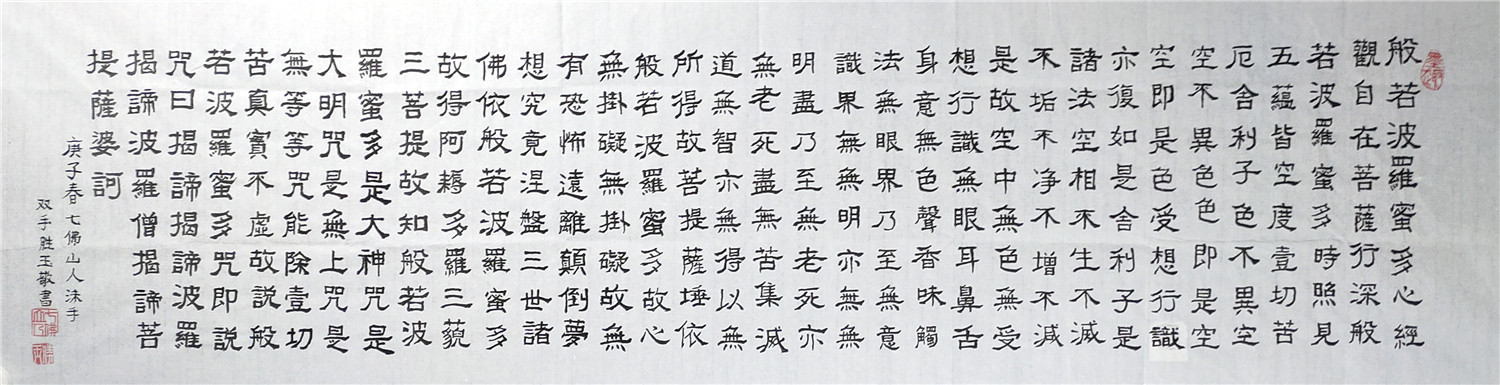 般若波羅蜜多心經
觀自在菩薩行深般
若波羅蜜多時照見
五蘊皆空度壹切苦
厄舍利子色不異空
空不異色色即是空
空即是色受想行識
亦復如是舍利子是
諸法空相不生不滅
不垢不净不增不減
是故空中無色無受
想行識無眼耳鼻舌
身意無色聲香味觸
法無眼界乃至無意
識界無無明亦無無
明盡乃至無老死亦
無老死盡無苦集滅
道無智亦無得以無
所得故菩提薩埵依
般若波羅蜜多故心
無掛礙無掛礙故無
有恐怖遠離顛倒夢
想究竟涅盤三世諸
佛依般若波羅蜜多
故得阿耨多羅三藐
三菩提故知般若波
羅蜜多是大神咒是
大明咒是無上咒是
無等等咒能除壹切
苦真實不虛故說般
若波羅蜜多咒即說
咒曰揭諦揭諦波羅
揭諦波羅僧揭諦菩
提薩婆訶
庚子春七佛山人沐手
双手胜玉敬書